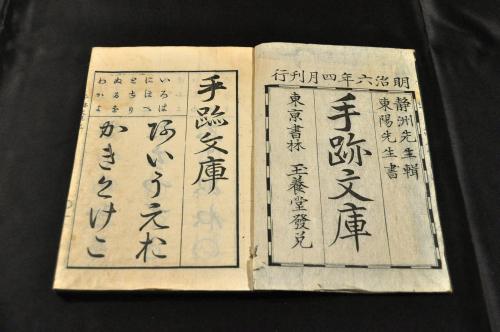 明治六年四月刊行
静洲先生輯
東陽先生書
手跡文庫
東京書林 玉養堂發兌
手跡文庫
いろは
にほへ
とちり
ぬるを
わかよ
あいうえお
かきくけこ